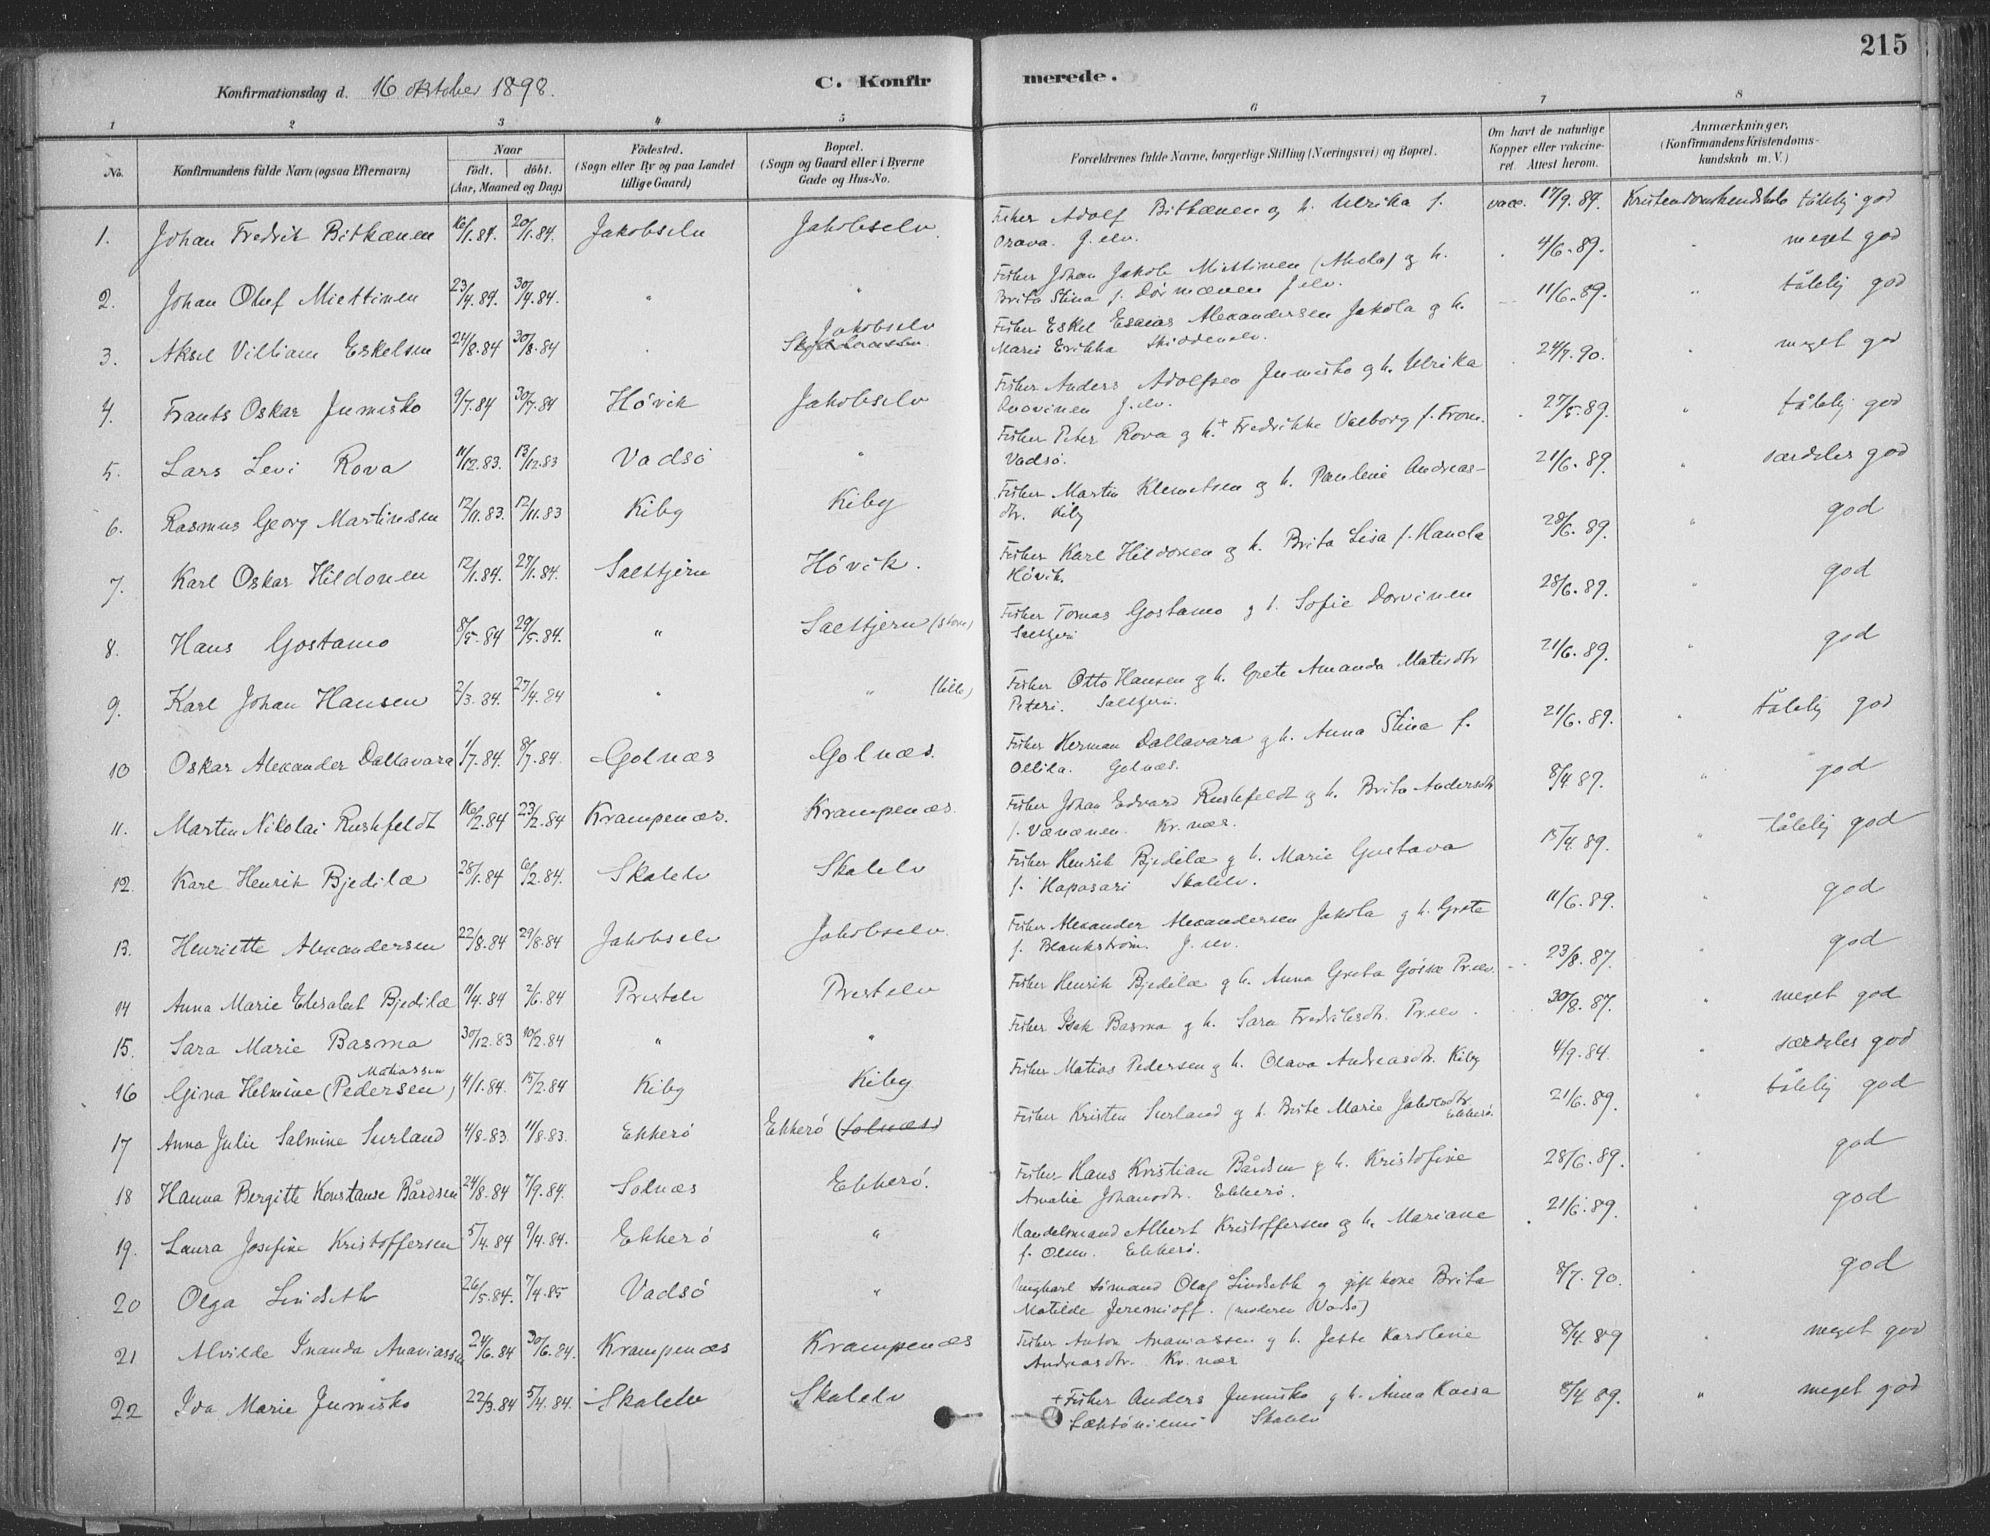 215
Konfirmationsdag d. 16 oktober 1898.
C. Konfirmerede.
1 2 3 4 5 6 7 8
No. Konfirmandens fulde Navn (ogsaa Efternavn) Naar födt. döbt. (Aar, Maaned og Dag) Födested. (Sogn eller By og paa Landet tillige Gaard) Bopæl. (Sogn og Gaard eller i Byerne Gade og Hus-No. Forældrenes fulde Navne, borgerlige Stilling (Næringsvei) og Bopæl. Om havt de naturlige Kopper eller vakcineret. Attest herom. Anmærkninger. (Konfirmandens Kristendomskundskab m. V.)
1. Johan Fredrik Bitkænen 16/1.84. 20/1.84. Jakobselv Jakobselv. Fisker Adolf Bitkænen og h. Ulrika f. Orava. J. elv. vacc. 17/9.89. Kristendomskundskab tålelig god
2. Johan Oluf Miettinen 23/4.84. 30/4.84. " " Fisker Johan Jakob Miettinen (Akola) og h. Brita Stina f. J.elv. 4/6.89. " meget god
3. Aksel Villiam Eskelsen 24/8.84 30/8.84 " Jakobselv Fisker Eskel Esaias Alexandersen Jakola og h. Marie Erikka Skiddenelv. 11/6.89. " tålelig god
4. Frants Oskar Jumisko 9/7.84 30/7.84 Høvik Jakobselv Fisker Anders Adolfsen Jumisko og h. Ulrika Ruovinen J.elv. 24/7.90. " meget god
5. Lars Levi Rova 11/12.83. 13/12.83 Vadsø " Fisker Peter Rova og h.+ Fredrikke Valborg f. From. Vadsø. 27/5.89. " tålelig god
6. Rasmus Georg Martinsen 12/11.83. 12/11.83 Kiby Kiby Fisker Martin Klemetsen og h. Pauline Andreasdtr. Kiby 21/6.89. " særdeles god
7. Karl Oskar Hildonen 12/1.84. 27/1.84. Saltjern Høvik. Fisker Karl Hildonen og h. Brita Lisa f. Hanola Høvik. 28/6.89. " god
8. Hans Gostamo 8/5.84 29/5.84. " Saltjern (store) Fisker Tomas Gostamo g h. Sofie Dorvinen Saltjern 28/6.89. " god
9. Karl Johan Hansen 2/3.84. 27/4.84 " " (lille) Fisker Otto Hansen og h. Grete Amanda Matisdtr Peteri. Saltjern. 21/6.89. " god
10 Oskar Alexander Dallavara 1/7.84. 8/7.84. Golnæs Golnæs. Fisker Herman Dallavara g h. Anna Stina f. Ollila. Golnæs. 21/6.89. " tålelig god
11. Martin Nikolai Rushfeldt 16/2.84 23/2.84 Krampenæs. Krampenæs. Fisker Johan Edvard Rushfeldt og h. Brita Andersdtr f. Vænænen. Kr. næs. 8/4.87. " god
12. Karl Henrik Bjedilæ 28/1.84 6/2.84. Skalelv Skalelv Fisker Henrik Bjedilæ g h. Marie Gustava f. Hapasari Skalelv. 15/4.89. " tålelig god
13. Henriette Alexandersen 22/8.84 29/8.84 Jakobselv Jakobselv. Fisker Alexander Alexandersen Jakola g h. Grete f. Blankstrøm. J. elv. 11/6.89. " god
14 Anna Marie Elisabet Bjedilæ 11/4.84 2/6.84 Prestelv Prestelv Fisker Henrik Bjedilæ g h. Anna Greta Pr.elv. 23/8.87. " god
15. Sara Marie Basma 30/12.83 10/2.84 " " Fisker Isak Basma g h. Sara Fredriksdtr. Pr.elv. 30/8.87. " meget god
16 Gina Helmine (Pedersen) Matiassen 4/1.84. 15/2.84 Kiby Kiby Fisker Matias Pedersen g h. Olava Andreasdtr. Kiby 4/9.84. " særdeles god
17 Anna Julie Salmine Surland 4/8.83 11/8.83. Ekkerø Ekkerø (Golnæs) Fisker Kristen Surland g h. Brite Marie Jakobsdtr Ekkerø. 21/6.89. " tålelig god
18 Hanna Bergitte Konstanse Bårdsen 24/8.84 7/9.84. Golnæs Ekkerø. Fisker Hans Kristian Bårdsen g h. Kristofine Amalie Johansdtr. Ekkerø. 28/6.89. god
19. Laura Josefine Kristoffersen 5/4.84 9/4.84. Ekkerø " Handelsmand Albert Kristoffersen og h. Mariane f. Olsen. Ekkerø. 21/6.89. " god
20 Olga Lindseth 26/5.84. 7/4.85 Vadsø " Ungkarl sømand Olaf Lindseth g gift kone Brita Matilde Jeremioff. (moderen Vadsø) 8/7.90. " god
21 Alvilde Inanda Ananiassen 24/6.84 30/6.84. Krampenæs Krampenæs Fisker Anton Ananiassen g h. Jette Karoline Andreasdtr. Kr. næs 8/4.89 " meget god
22 Ida Marie Jumisko 22/3.84 5/4.84. Skalelv Skalelv + Fisker Anders Jumisko g h. Anna Kaisa Skalelv 8/4 89. " meget god